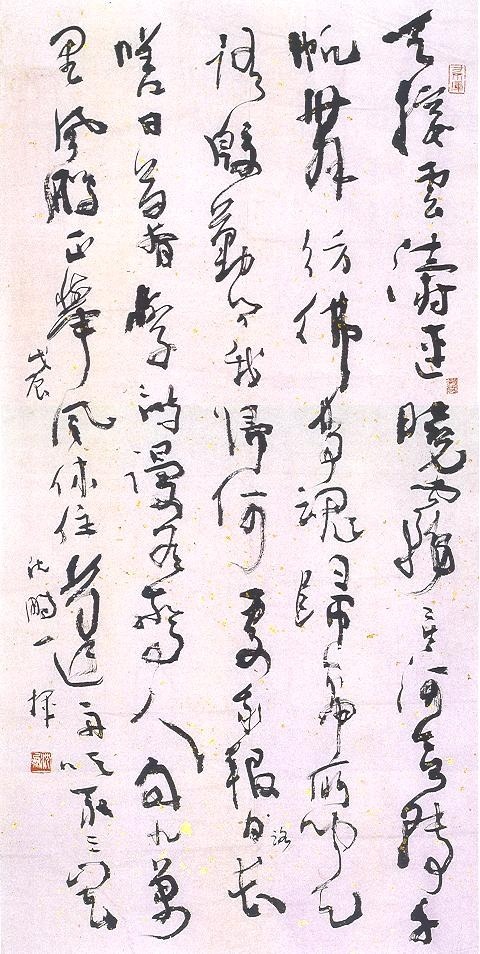 天接雲濤連曉霧星河欲轉千
帆舞彷佛夢魂歸帝所聞天
語殷勤問我歸何處我報路長
嗟日暮學詩謾有驚人句九萬
里風鵬正舉風休住蓬舟吹取三山去
戊辰沈鵬一揮